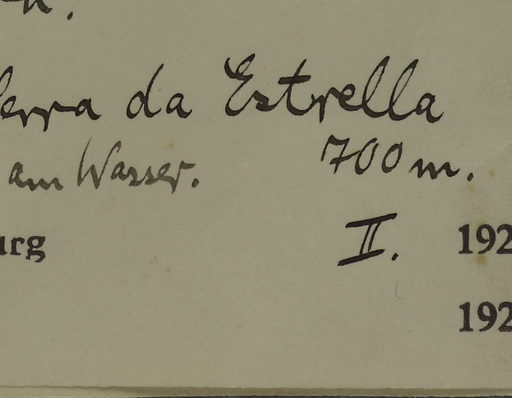 erra da Estrella
am Wasser. 700 m.
urg II. 192
192